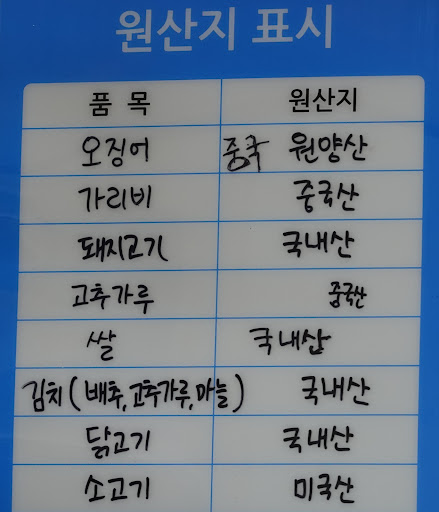 원산지 표시
품 목 원산지
오징어 중국 원양산
가리비 중국산
돼지고기 국내산
고추가루 중국산
쌀 국내산
김치(배추,고추가루,마늘) 국내산
닭고기 국내산
소고기 미국산